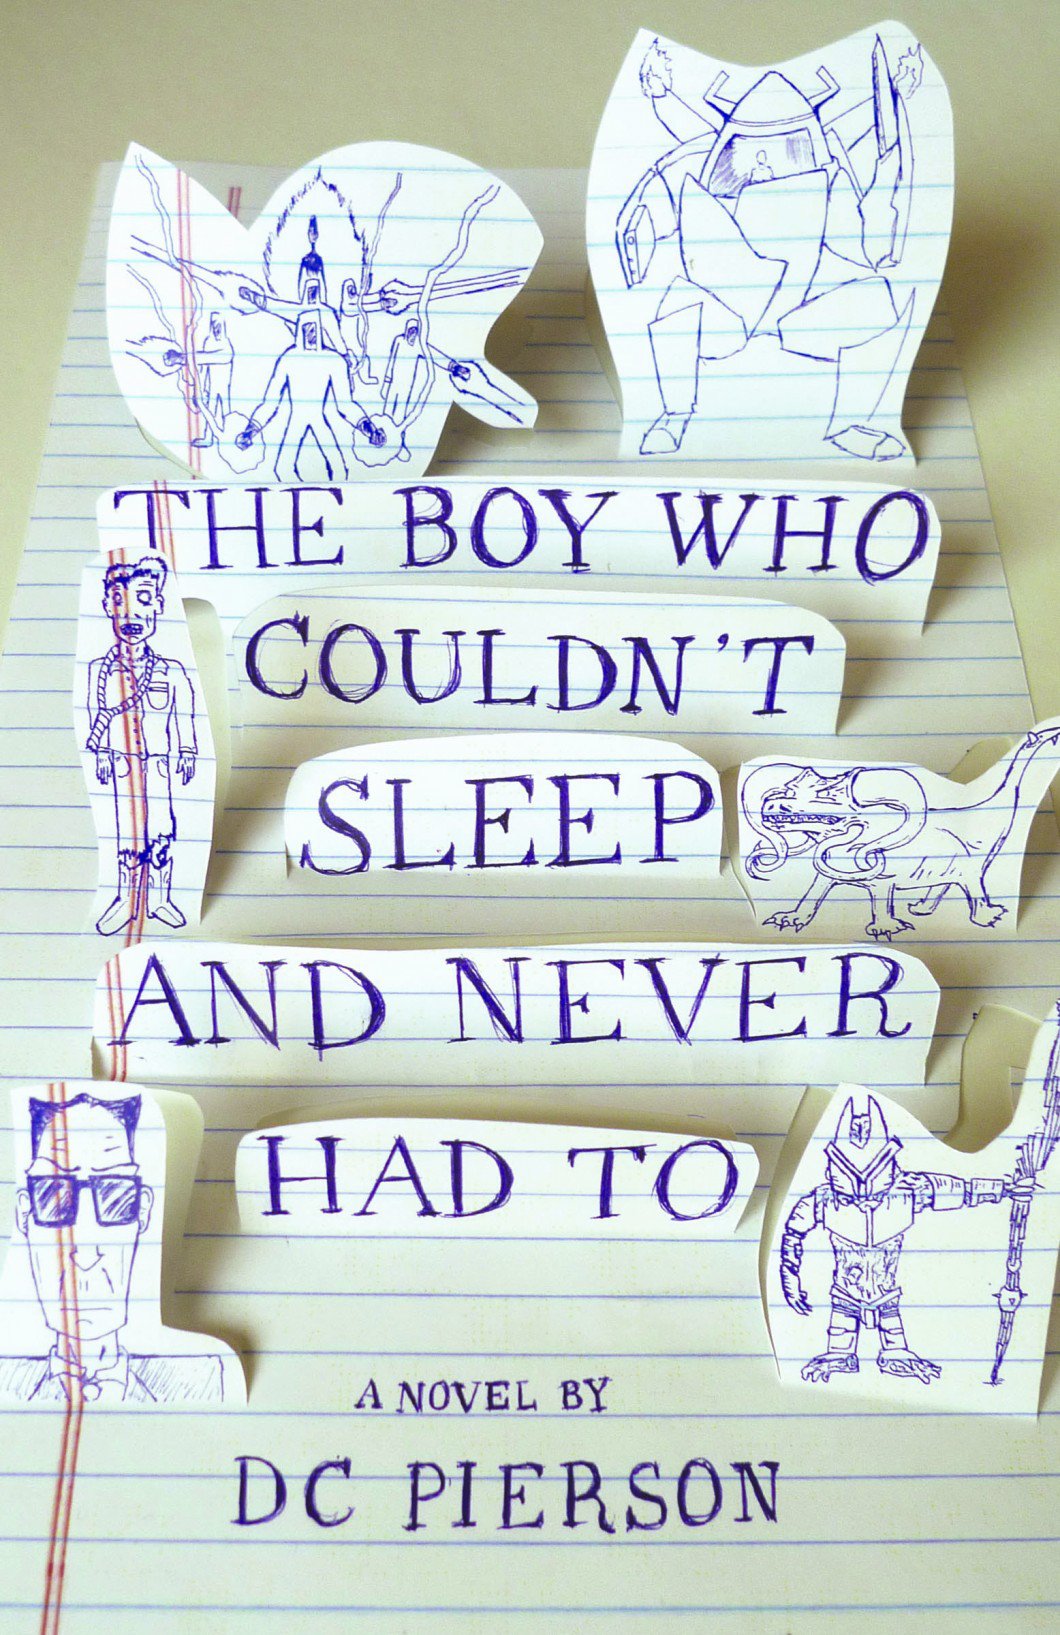 THE BOY WHO
COULDN'T
SLEEP
AND NEVER
HAD TO
A NOVEL BY
DC PIERSON